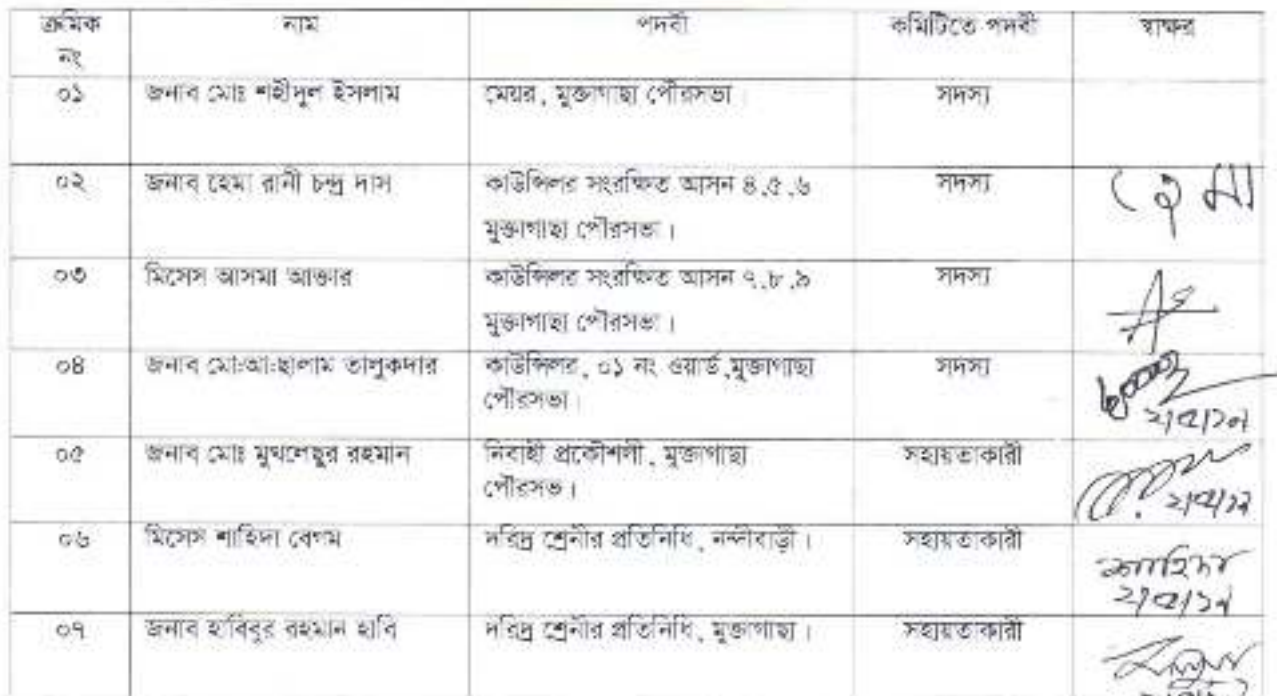 ক্রমিক নাম পদবী কমিটিতে পদবী স্বাক্ষর
নং
০১ জনাব মোঃ শহীদুল ইসলাম মেয়র, মুক্তাগাছা পৌরসভা। সদস্য
০২ জনাব হেমা রানী চন্দ্র দাস কাউন্সিলর সংরক্ষিত আসন ৪,৫,৬ সদস্য হেমা
মুক্তাগাছা পৌরসভা।
০৩ মিসেস আসমা আক্তার কাউন্সিলর সংরক্ষিত আসন ৭,৮,৯ সদস্য
মুক্তাগাছা পৌরসভা।
০৪ জনাব মো:আ:ছালাম তালুকদার কাউন্সিলর, ০১ নং ওয়ার্ড,মুক্তাগাছা সদস্য
পৌরসভা।
০৫ জনাব মোঃ মুখলেছুর রহমান নিবাহী প্রকৌশলী, মুক্তাগাছা সহায়তাকারী
পৌরসভ।
০৬ মিসেস শাহিদা বেগম দরিদ্র শ্রেনীর প্রতিনিধি, নন্দীবাড়ী। সহায়তাকারী শাহিদা
০৭ জনাব হাবিবুর রহমান হাবি দরিদ্র শ্রেনীর প্রতিনিধি, মুক্তাগাছা। সহায়তাকারী